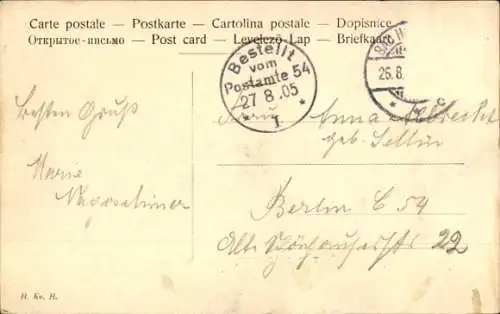 Carte postale — Postkarte — Cartolina postale — Dopisnice
Открытое-письмо — Post card — Levelező-Lap — Briefkaart
Bestellt
vom
Postamte 54
27 8.05
* 1 *
26.8.
* * c
Besten Gruß
Marie
Frau Anna Albrecht
geb.
Berlin C 54
Alte Schönhauserstr 22
H. Kv. H.